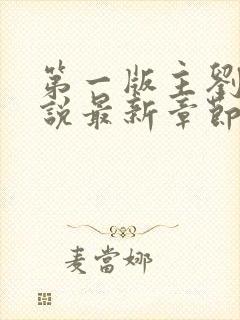 第一版主劉
說最新章節
麦當娜